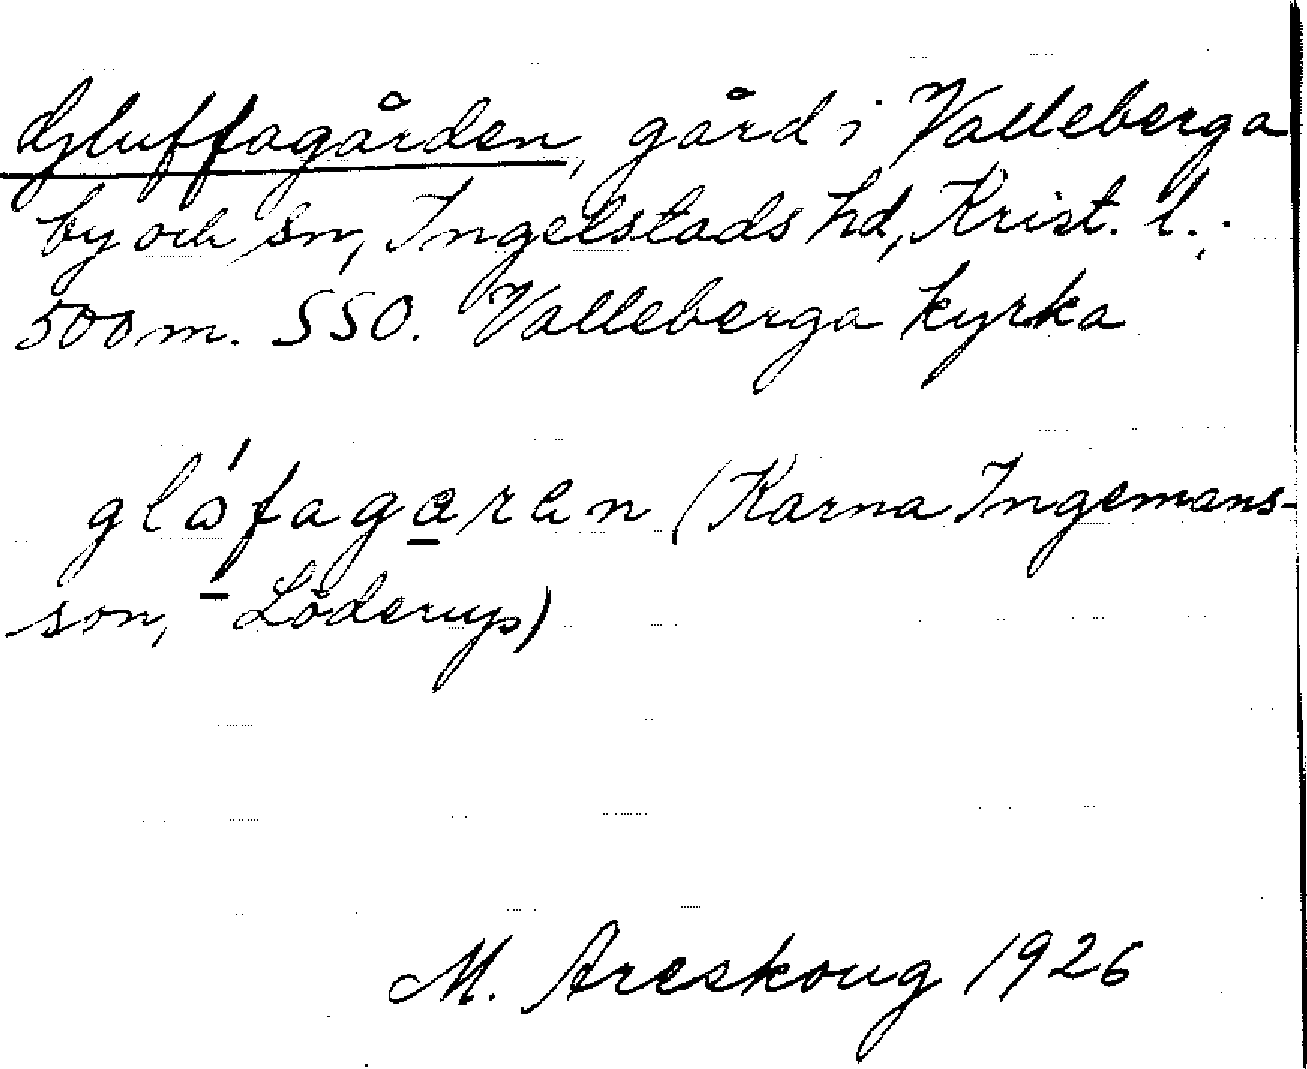 Gluffagården, gård i Valleberga
by och sn, Ingelstads hd, Krist. l.;
500 m. SSO. Valleberga kyrka
glófagaren (Karna Ingemans-
son, Löderup)
M. Areskoug 1926